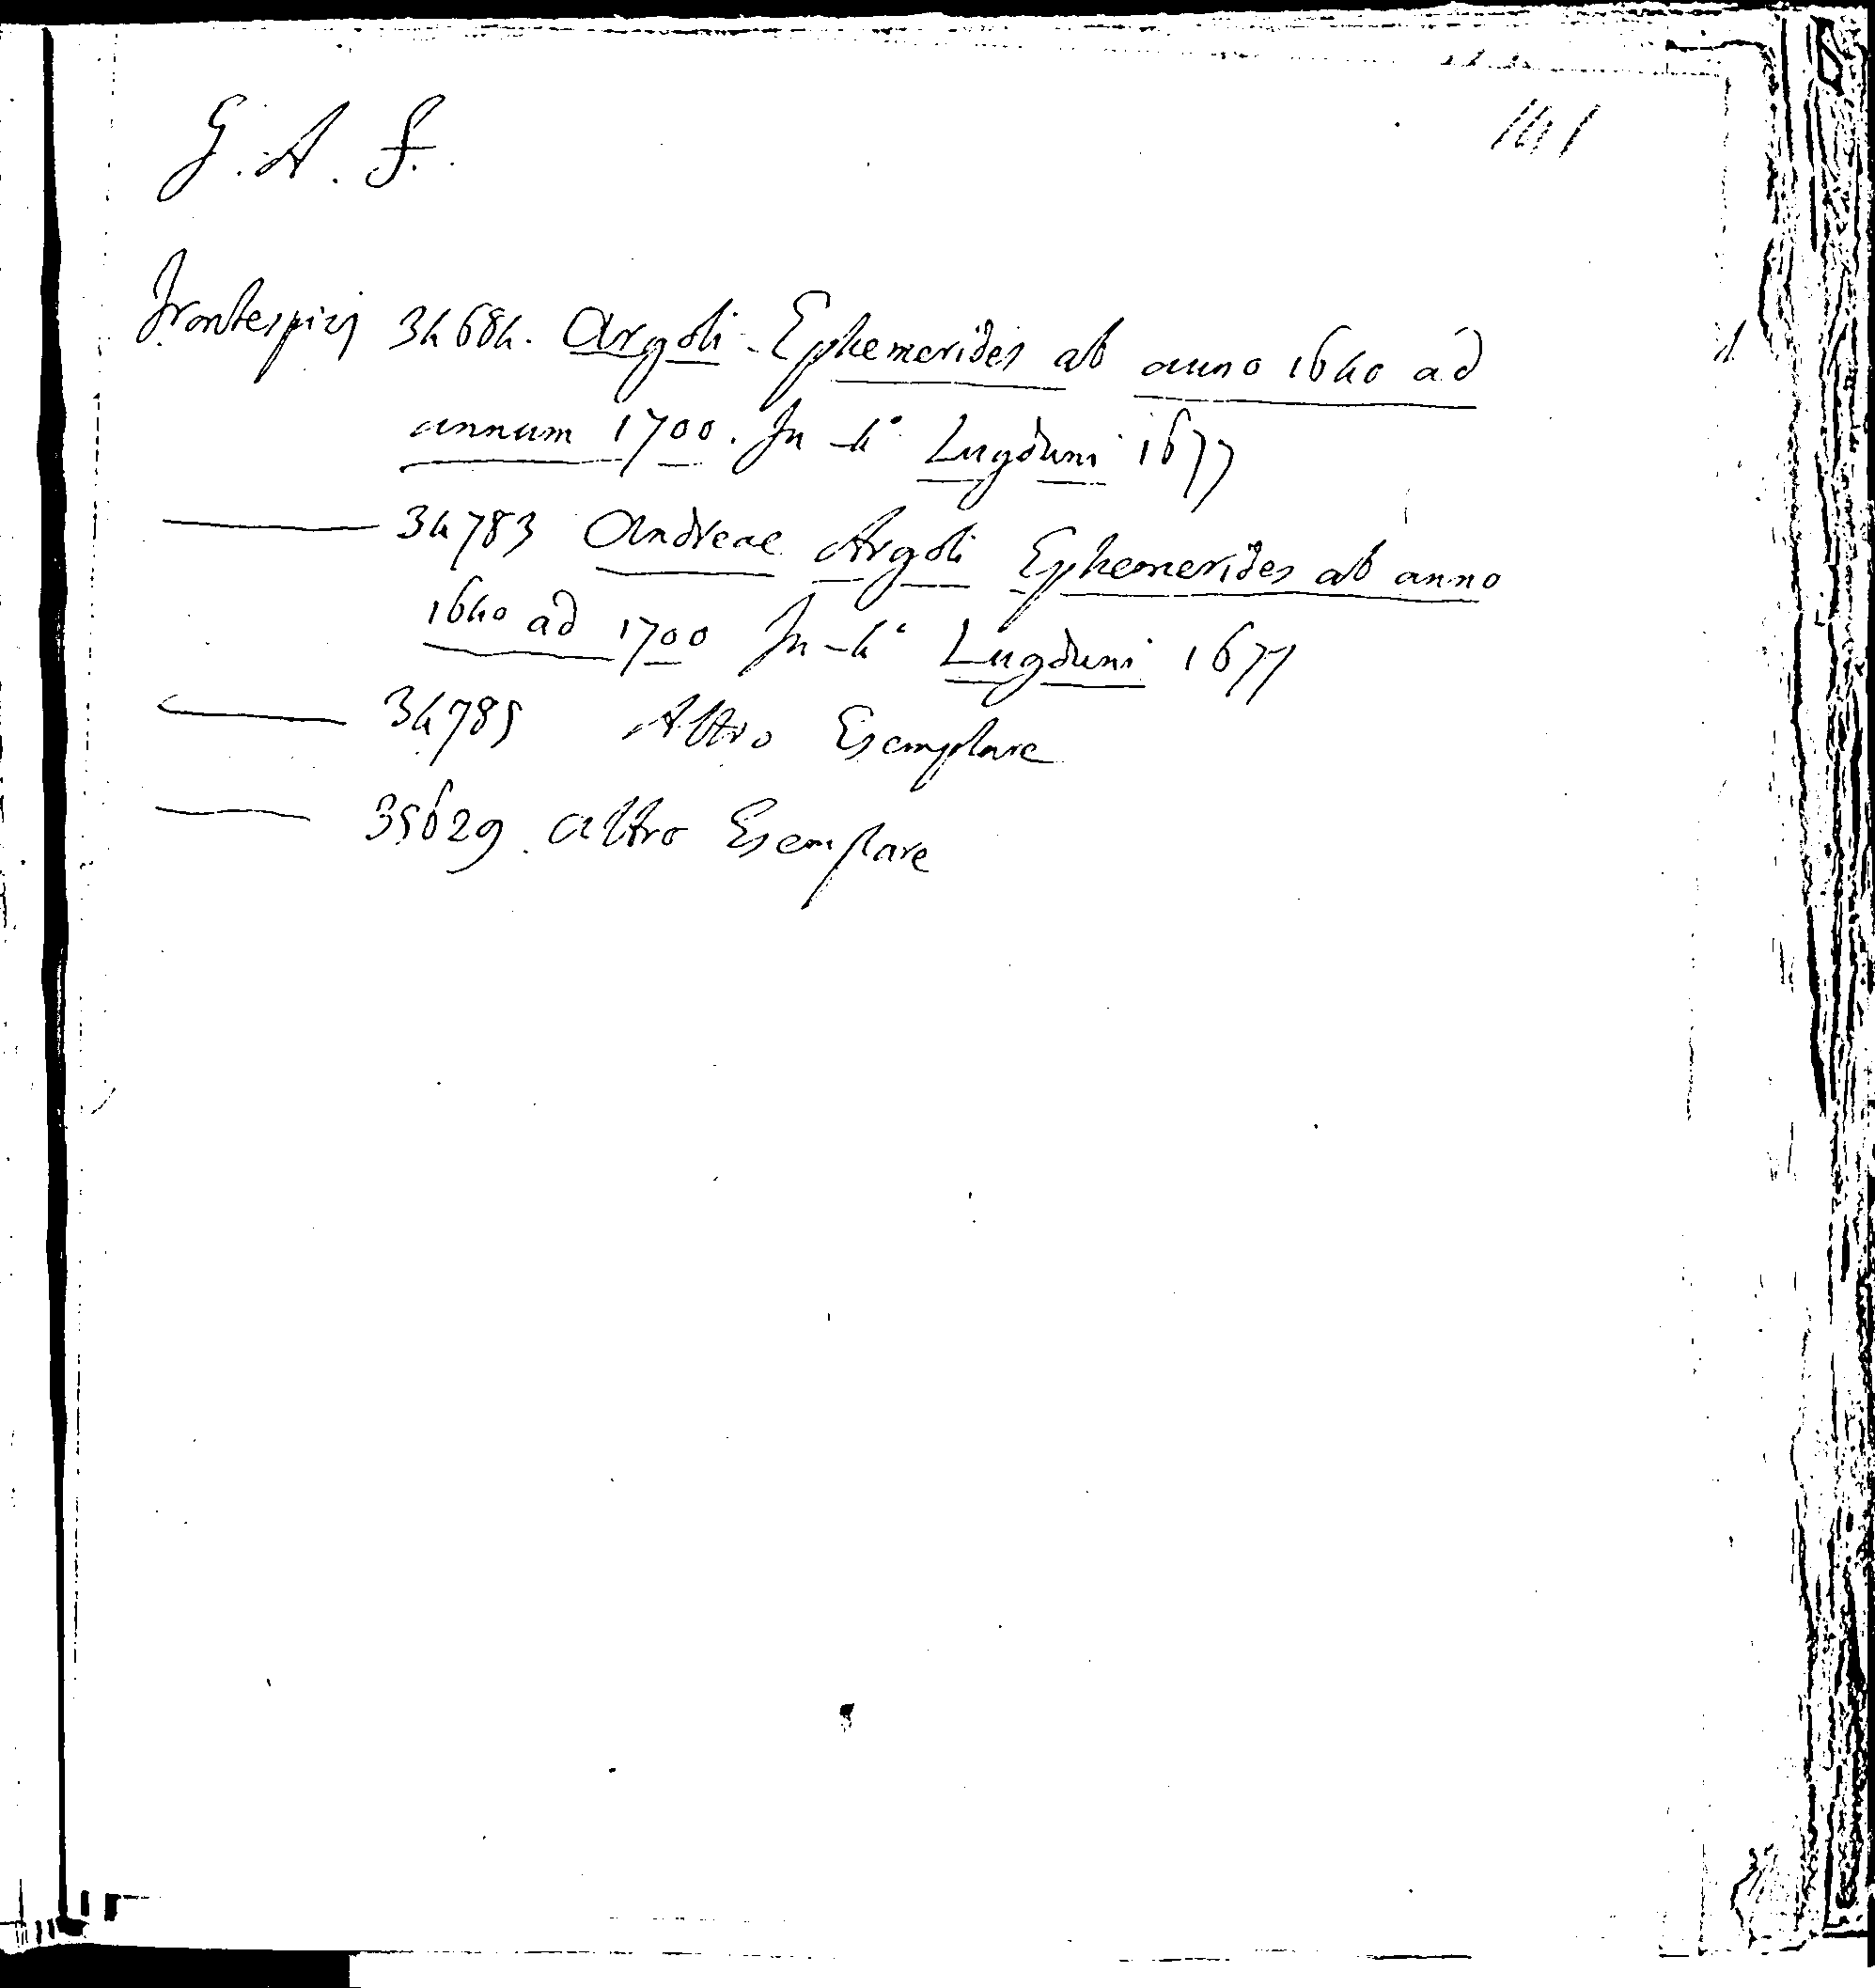 G. A. F.
141
Frontespizj 34684. Argoli Ephemerides ab anno 1640 ad
annum 1700. In-4° Lugduni 1677
34783 Andreae Argoli Ephemerides ab anno
1640 ad 1700 In-4° Lugduni 1677
34785 Altro Esemplare
35629. Altro Esemplare